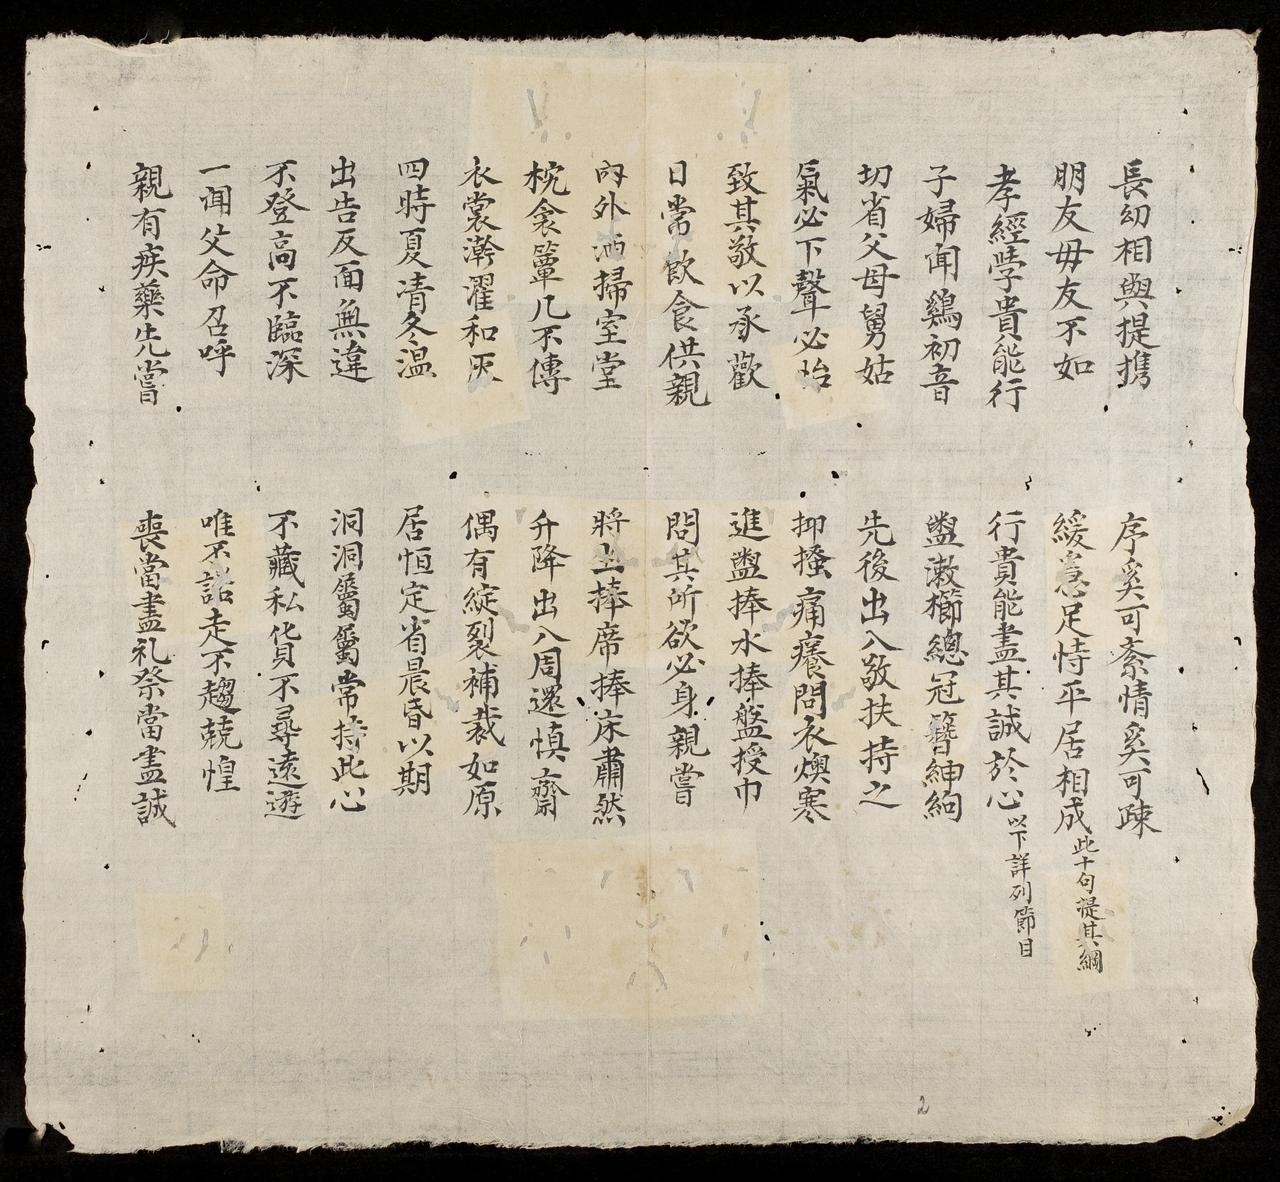 長幼相與提携 序奚可紊情奚可疎
朋友毋友不如 緩急足恃平居相成 此十句提其綱
孝經學貴能行 行貴能盡其誠於心 以下詳列節目
子婦聞鷄初音 盥漱櫛總冠簪紳絢
切省父母舅姑 先後出入敬扶持之
氣必下聲必怡 抑搔痛癢問衣燠寒
致其敬以承歡 進盥捧水捧盤授巾
日常飲食供親 問其所欲必身親嘗
内外洒掃室堂 將坐捧席捧床肅然
枕衾簟几不傳 升降出入周還慎齋
衣裳澣濯和灰 偶有綻裂補裁如原
四時夏凊冬温 居恒定省晨昏以期
出告反面無違 洞洞屬屬常持此心
不登高不臨深 不藏私貨不尋遠遊
一聞父命召呼 唯不諾走不趨兢惶
親有疾藥先嘗 喪當盡礼祭當盡誠
2